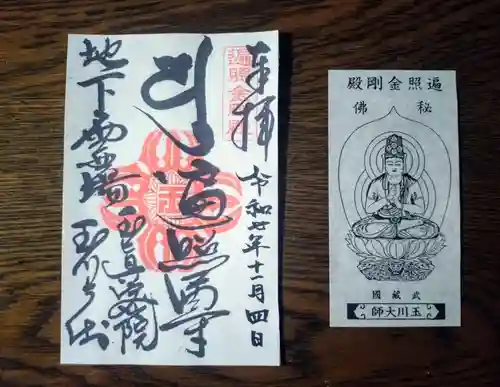 奉拝
令和七年十一月四日
遍照
地下霊場
玉眞密院
玉川大師
遍照金剛殿
秘佛
武蔵國
玉川大師